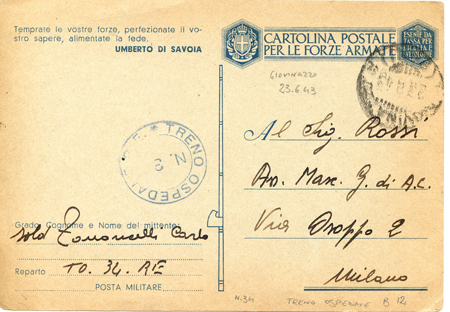 Temprate le vostre forze, perfezionate il vo-
stro sapere, alimentate la fede.
UMBERTO DI SAVOIA
CARTOLINA POSTALE
PER LE FORZE ARMATE
ESENTE DA
TASSA PER
Giovinazzo
23.6.43
TRENO OSPEDALE
N. 3
Al Sig. Rossi
Av. Masc. G. di A.C.
Via Osoppo 2
Milano
Grado Cognome e Nome del mittente:
sold Carlo
Reparto TO. 34. RE
POSTA MILITARE
N. 34 TRENO OSPEDALE B 12